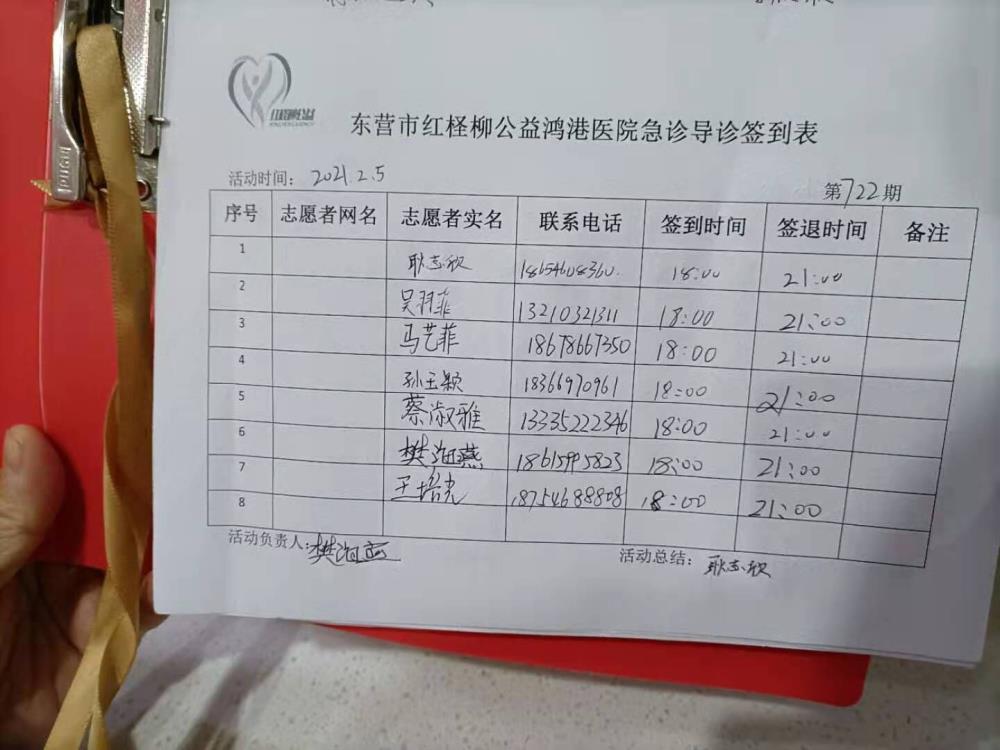 东营市红柽柳公益鸿港医院急诊导诊签到表
活动时间： 2021.2.5 第722期
序号 志愿者网名 志愿者实名 联系电话 签到时间 签退时间 备注
1 耿志欣 18654608360. 18:00 21:00
2 吴羽菲 13210321311 18:00 21:00
3 马艺菲 18678667350 18:00 21:00
4 孙玉颖 18366970961 18:00 21:00
5 蔡淑雅 13335222346 18:00 21:00
6 樊海燕 18615995823 18:00 21:00
7 王培尧 18754688808 18:00 21:00
8
活动负责人：樊海燕 活动总结： 耿志欣